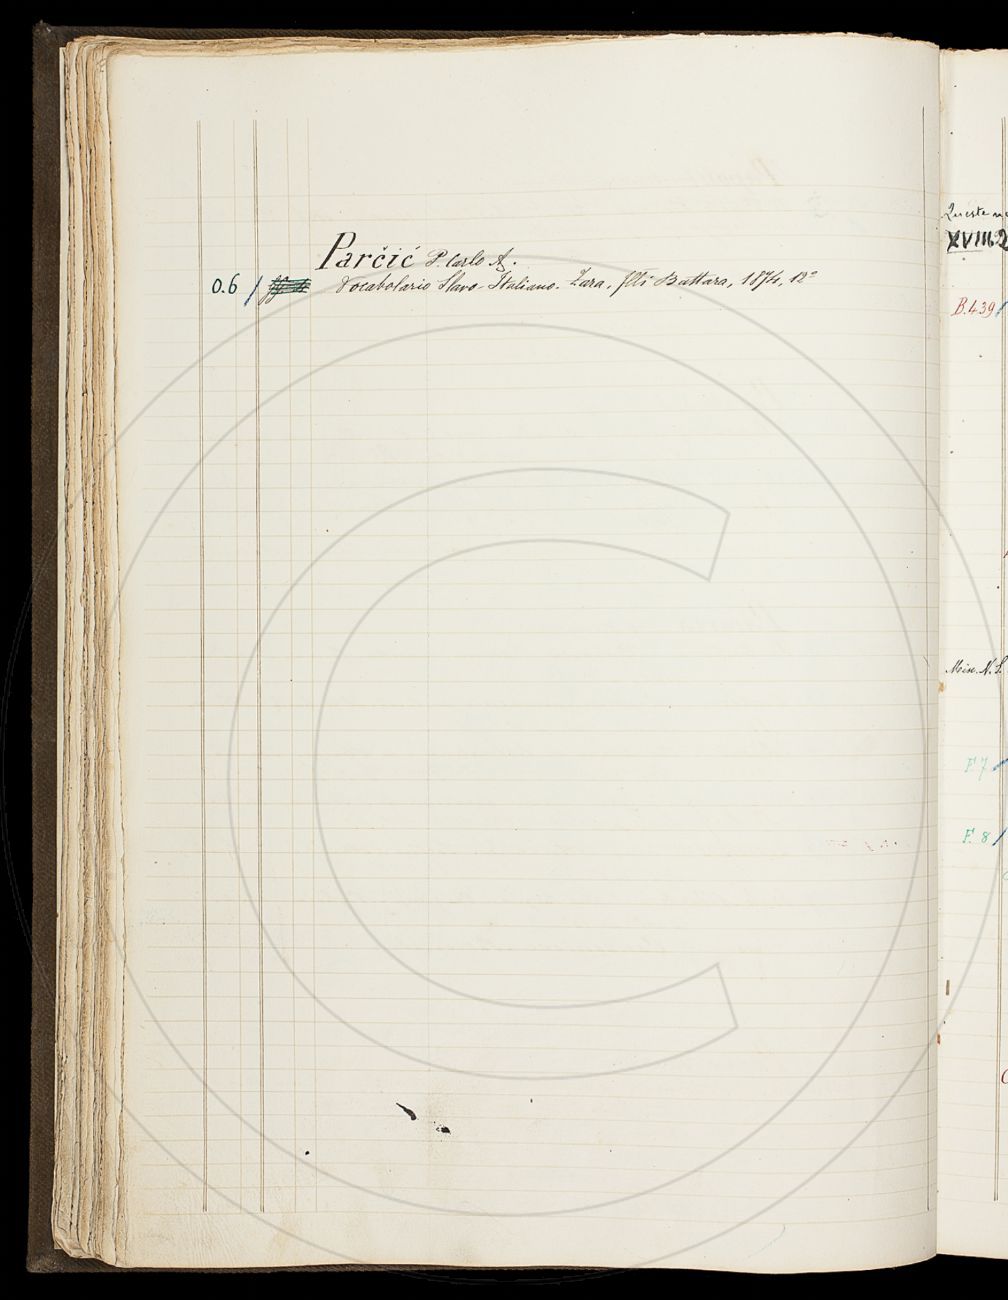 Parčić P. Carlo A.
O.6 / Vocabolario Slavo-Italiano. Zara, flli Battara, 1874, 12°
Queste
XVIII.2
B.439 /
Misc. N. S.
F. 7 /
F. 8 /